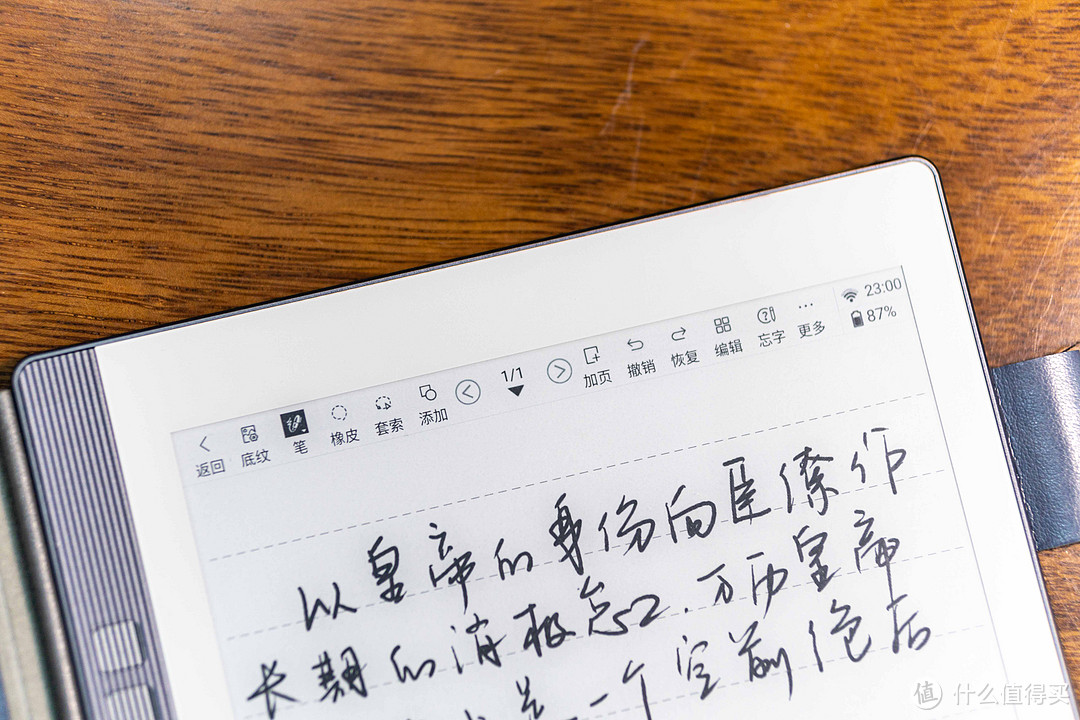 23:00
87%
返回 底纹 笔 橡皮 套索 添加 1/1 加页 撤销 恢复 编辑 忘字 更多
以皇帝的身份向臣僚作
长期的消极怠工,万历皇帝
是一个空前绝后
值 什么值得买